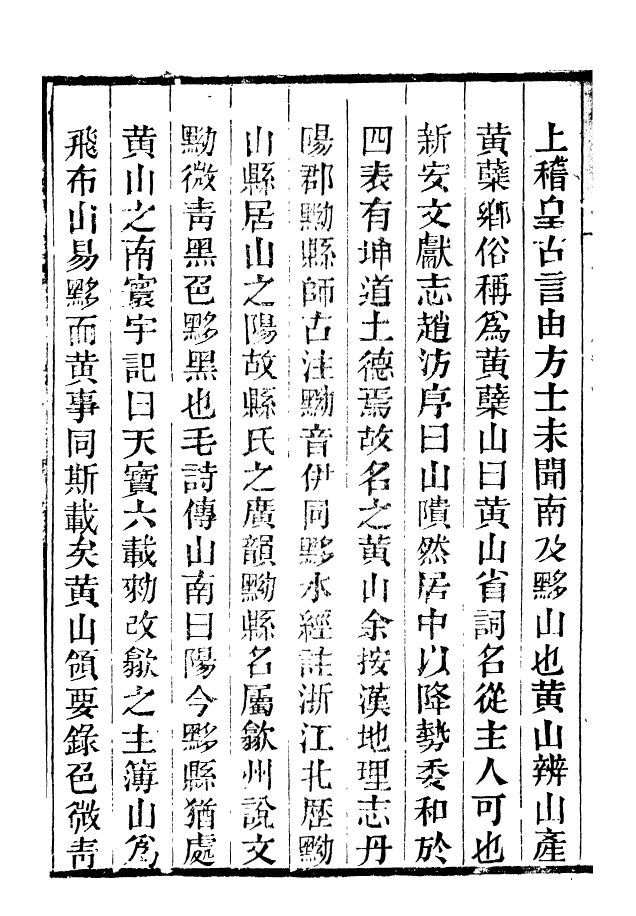 上稽皇古言由方士未聞南及黟山也黃山辨山產
黃蘗鄉俗稱爲黃蘗山曰黃山省詞名從主人可也
新安文獻志趙汸序曰山隤然居中以降勢委和於
四表有坤道土德焉故名之黃山余按漢地理志丹
陽郡黝縣師古注黝音伊同黟水經註浙江北歷黝
山縣居山之陽故縣氏之廣韻黝縣名屬歙州說文
黝微青黑色黟黑也毛詩傳山南曰陽今黟縣猶處
黃山之南寰宇記曰天寶六載勑改歙之主簿山爲
飛布山易黟而黃事同斯載矣黃山領要錄色微青